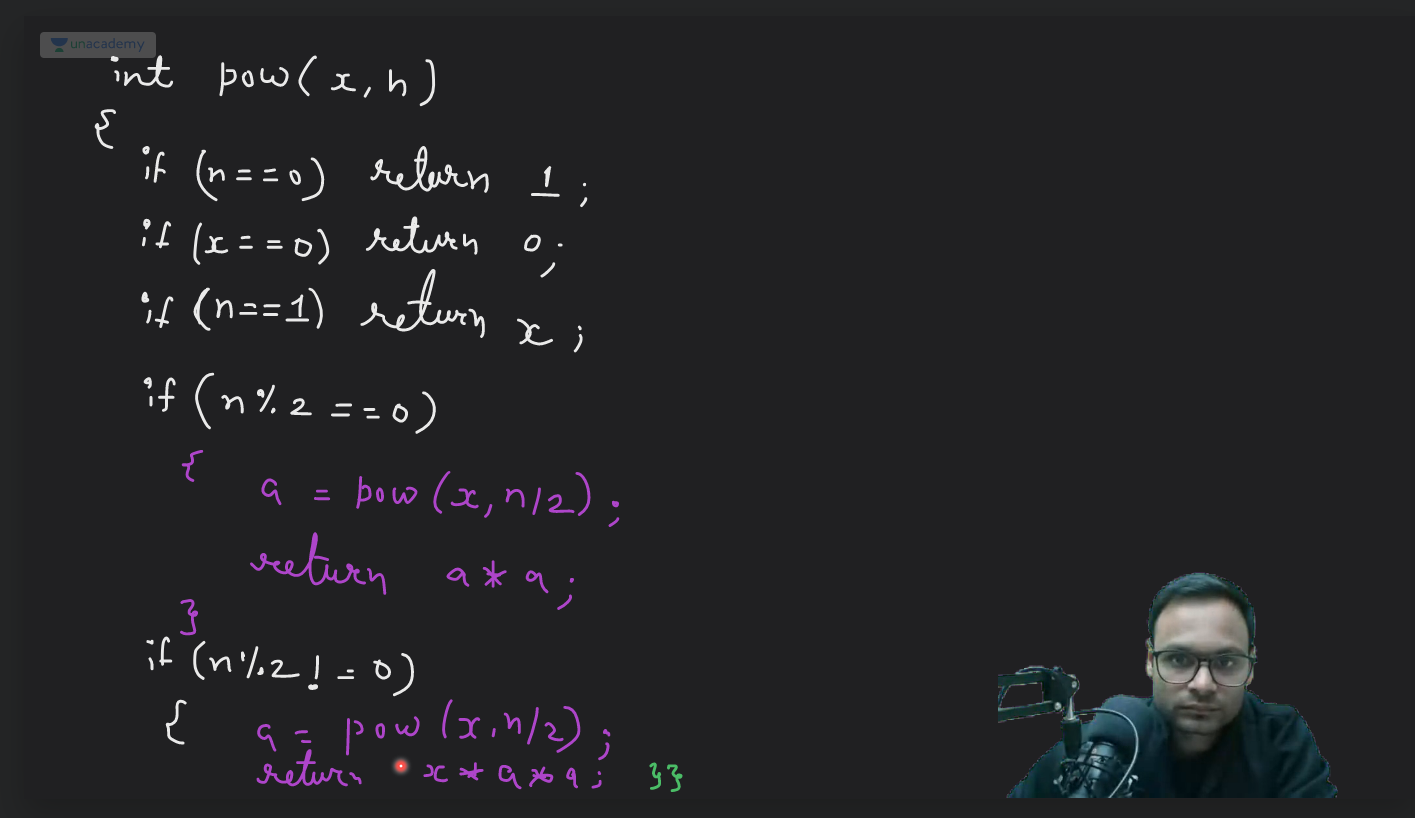 unacademy
int pow(x,n)
{
if (n==0) return 1;
if (x==0) return 0;
if (n==1) return x;
if (n%2==0)
{ a = pow(x,n/2);
return a*a;
}
if (n%2!=0)
{ a = pow(x,n/2);
return x*a*a; }}